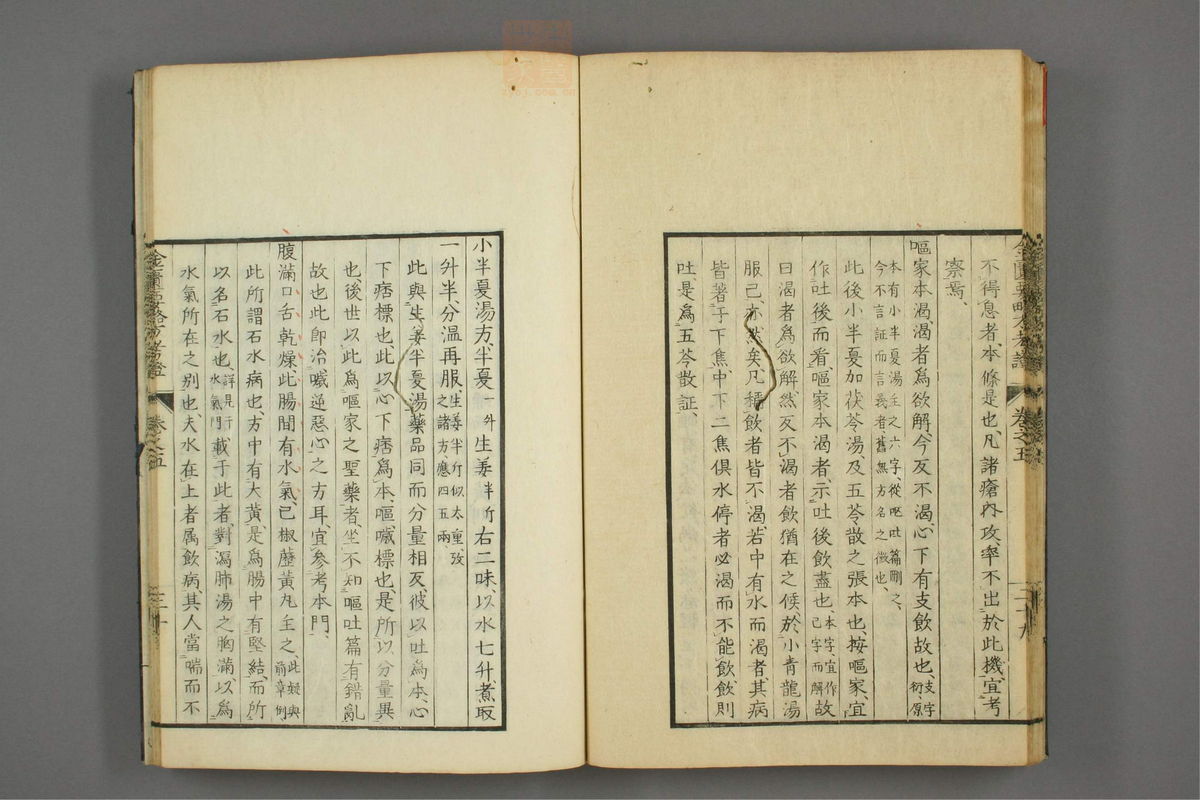 不得息者、本條是也、凡諸瘡內攻、率不出於此機、宜考
察焉、
嘔家本渴、渴者爲欲解、今反不渴、心下有支飲故也、支字衍原
本有小半夏湯主之六字、從嘔吐篇刪之、
今不言証而言義者、舊無方名之徵也、
此後小半夏加茯苓湯及五苓散之張本也、按嘔家、宜
作吐後而看、嘔家本渴者、示吐後飲盡也、本字、宜作已字而解故
曰渴者爲欲解、然反不渴者飲猶在之候、於小青龍湯
服已、亦然矣、凡積飲者皆不渴、若中有水而渴者、其病
皆著于下焦、中下二焦俱水停者必渴而不能飲、飲則
吐、是爲五苓散証、
金匱要略方考證
卷之五
二十九
小半夏湯方、半夏一升生姜半斤右二味、以水七升、煮取
一升半、分溫再服、生姜半斤似太重攷之諸方、應四五兩
此與生姜半夏湯藥品同而分量相反、彼以吐爲本、心
下痞標也、此以心下痞爲本、嘔噦標也、是所以分量異
也後世以此爲嘔家之聖藥者、坐不知嘔吐篇有錯亂
故也此即治噦逆惡心之方耳、宜參考本門、
腹滿口舌乾燥、此腸間有水氣、已椒藶黃丸主之、此疑與前章倒
此所謂石水病也、方中有大黃、是爲腸中有堅結、而所
以名石水也、詳見于水氣門載于此者、對瀉肺湯之胸滿、以爲
水氣所在之別也、夫水在上者属飲病、其人當喘而不
金匱要略方考證
卷之五
三十